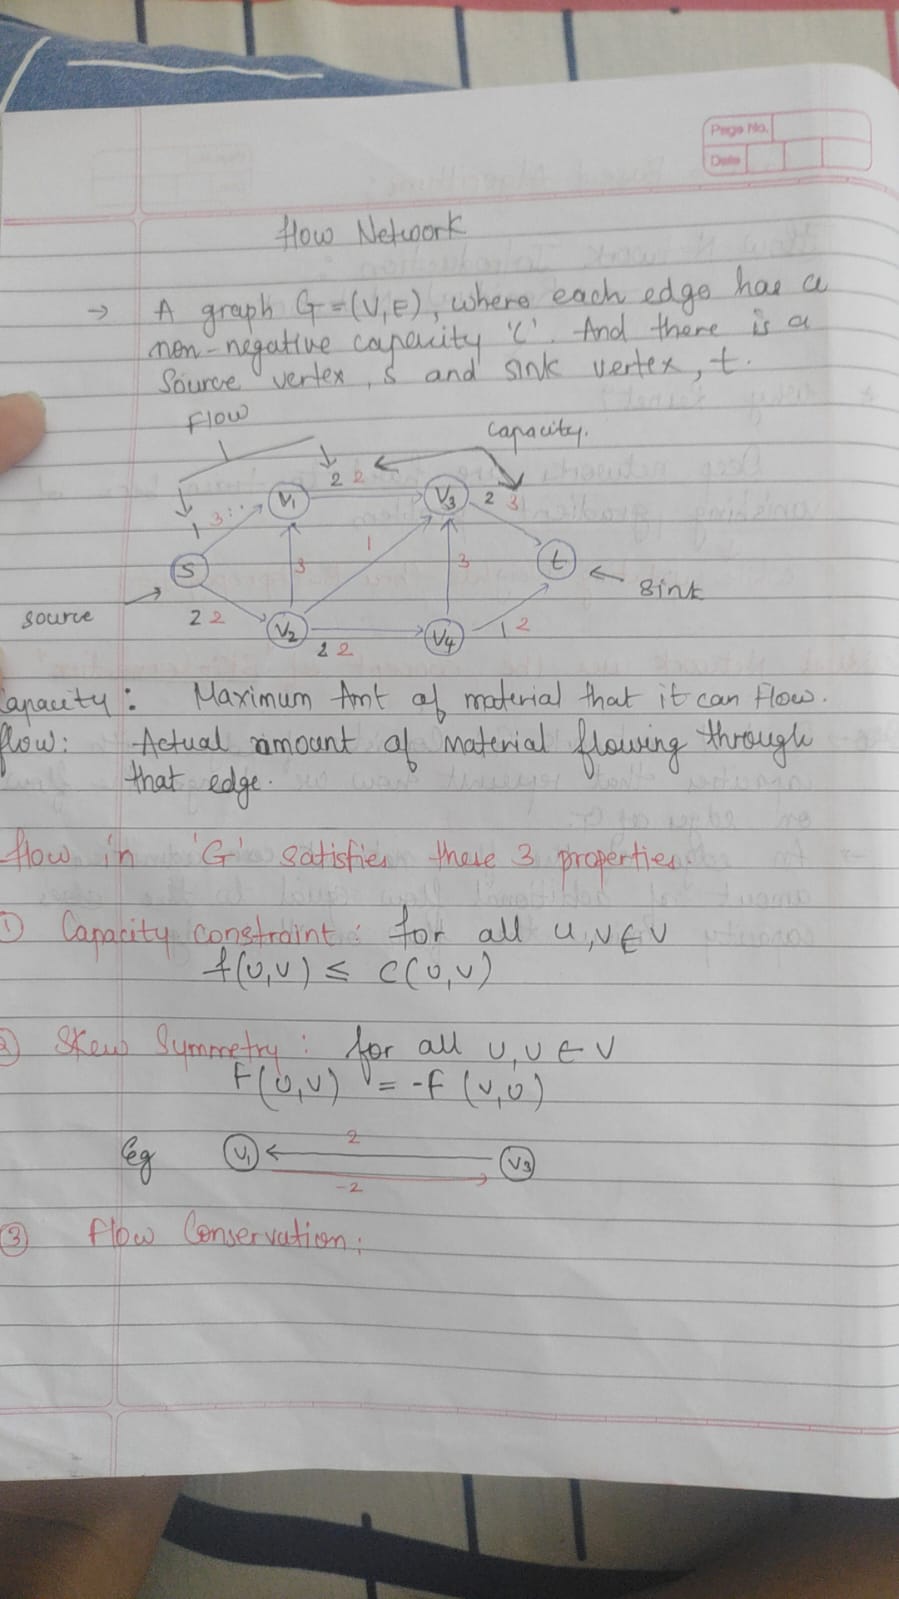 Page No.
Date
flow Network
→ A graph G=(V,E), where each edge has a
non-negative capacity 'C'. And there is a
Source vertex, s and sink vertex, t.
Flow
Capacity.
2 2
V1
V3
2 3
1 3
1
S
3
3
t
Sink
source
2 2
V2
2 2
V4
1 2
Capacity: Maximum Amt of material that it can flow.
flow: Actual amount of material flowing through
that edge.
flow in 'G' satisfies these 3 properties.
① Capacity constraint: for all u,v∈V
f(u,v) ≤ c(u,v)
② Skew Symmetry: for all u,v∈V
F(u,v) = -f(v,u)
Eg V1 2 V3
-2
③ Flow Conservation: